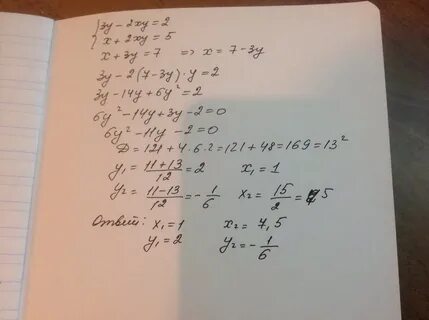 {3y - 2xy = 2
x + 2xy = 5
x + 3y = 7 ⇒ x = 7 - 3y
3y - 2(7 - 3y)·y = 2
3y - 14y + 6y² = 2
6y² - 14y + 3y - 2 = 0
6y² - 11y - 2 = 0
D = 121 + 4·6·2 = 121 + 48 = 169 = 13²
y₁ = (11 + 13)/12 = 2 x₁ = 1
y₂ = (11 - 13)/12 = -1/6 x₂ = 15/2 = 7,5
Ответ: x₁ = 1 x₂ = 7,5
y₁ = 2 y₂ = -1/6